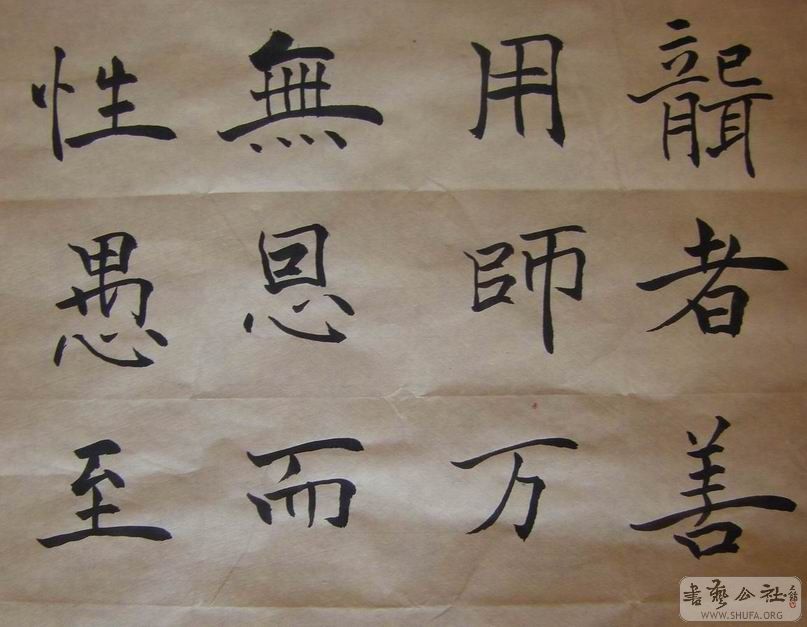 聾者善
用師万
無恩而
性愚至
書藝公社
WWW.SHUFA.ORG